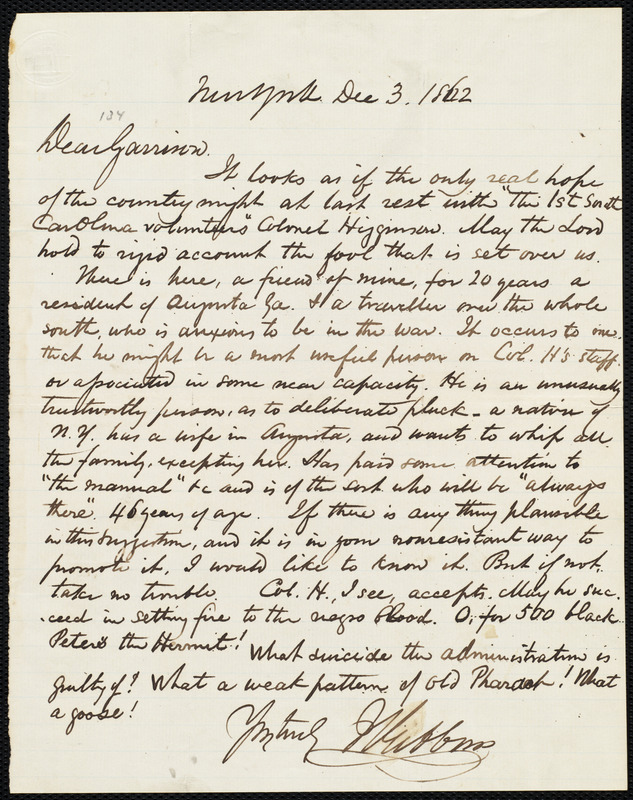 New York. Dec 3. 1862
134
Dear Garrison.
It looks as if the only real hope
of the country might at last rest with "the 1st South
Carolina volunteers" Colonel Higginson. May the Lord
hold to rigid account the fool that is set over us.
There is here, a friend of mine, for 20 years a
resident of Augusta Ga. & a traveller over the whole
south, who is anxious to be in the war. It occurs to me,
that he might be a most useful person on Col. H's staff,
or associated in some near capacity. He is an unusually
trustworthy person, as to deliberate pluck - a native of
N.Y. has a wife in Augusta, and wants to whip all
the family, excepting her. Has paid some attention to
"the manual" &c and is of the sort who will be "always
there". 46 years of age. If there is any thing plausible
in this suggestion, and it is in your nonresistant way to
promote it, I would like to know it. But if not,
take no trouble. Col. H., I see, accepts. May he suc-
-ceed in setting fire to the negro blood. O, for 500 black
Peters the Hermit! What suicide the administration is
guilty of! What a weak pattern of old Pharaoh! What
a goose!
Yrs truly J S Gibbons